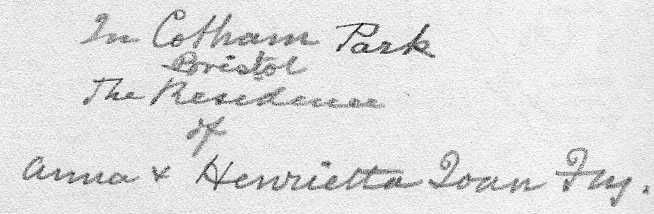 In Cotham Park
Bristol
The Residence
of
Anna & Henrietta Joan Fry.